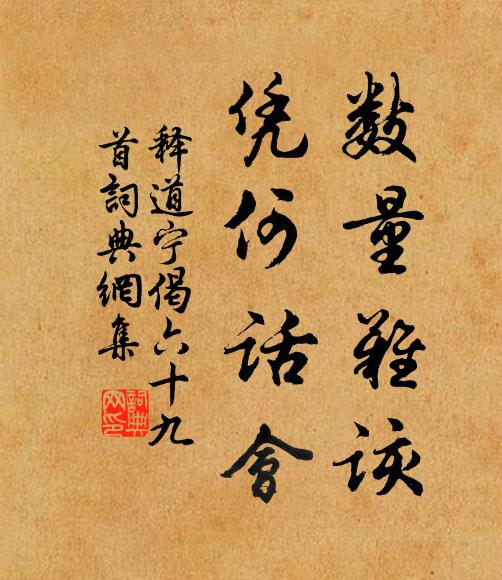 数量難該
凭何話會
释道宁偈六十九
首詞典網集
詞典
网印